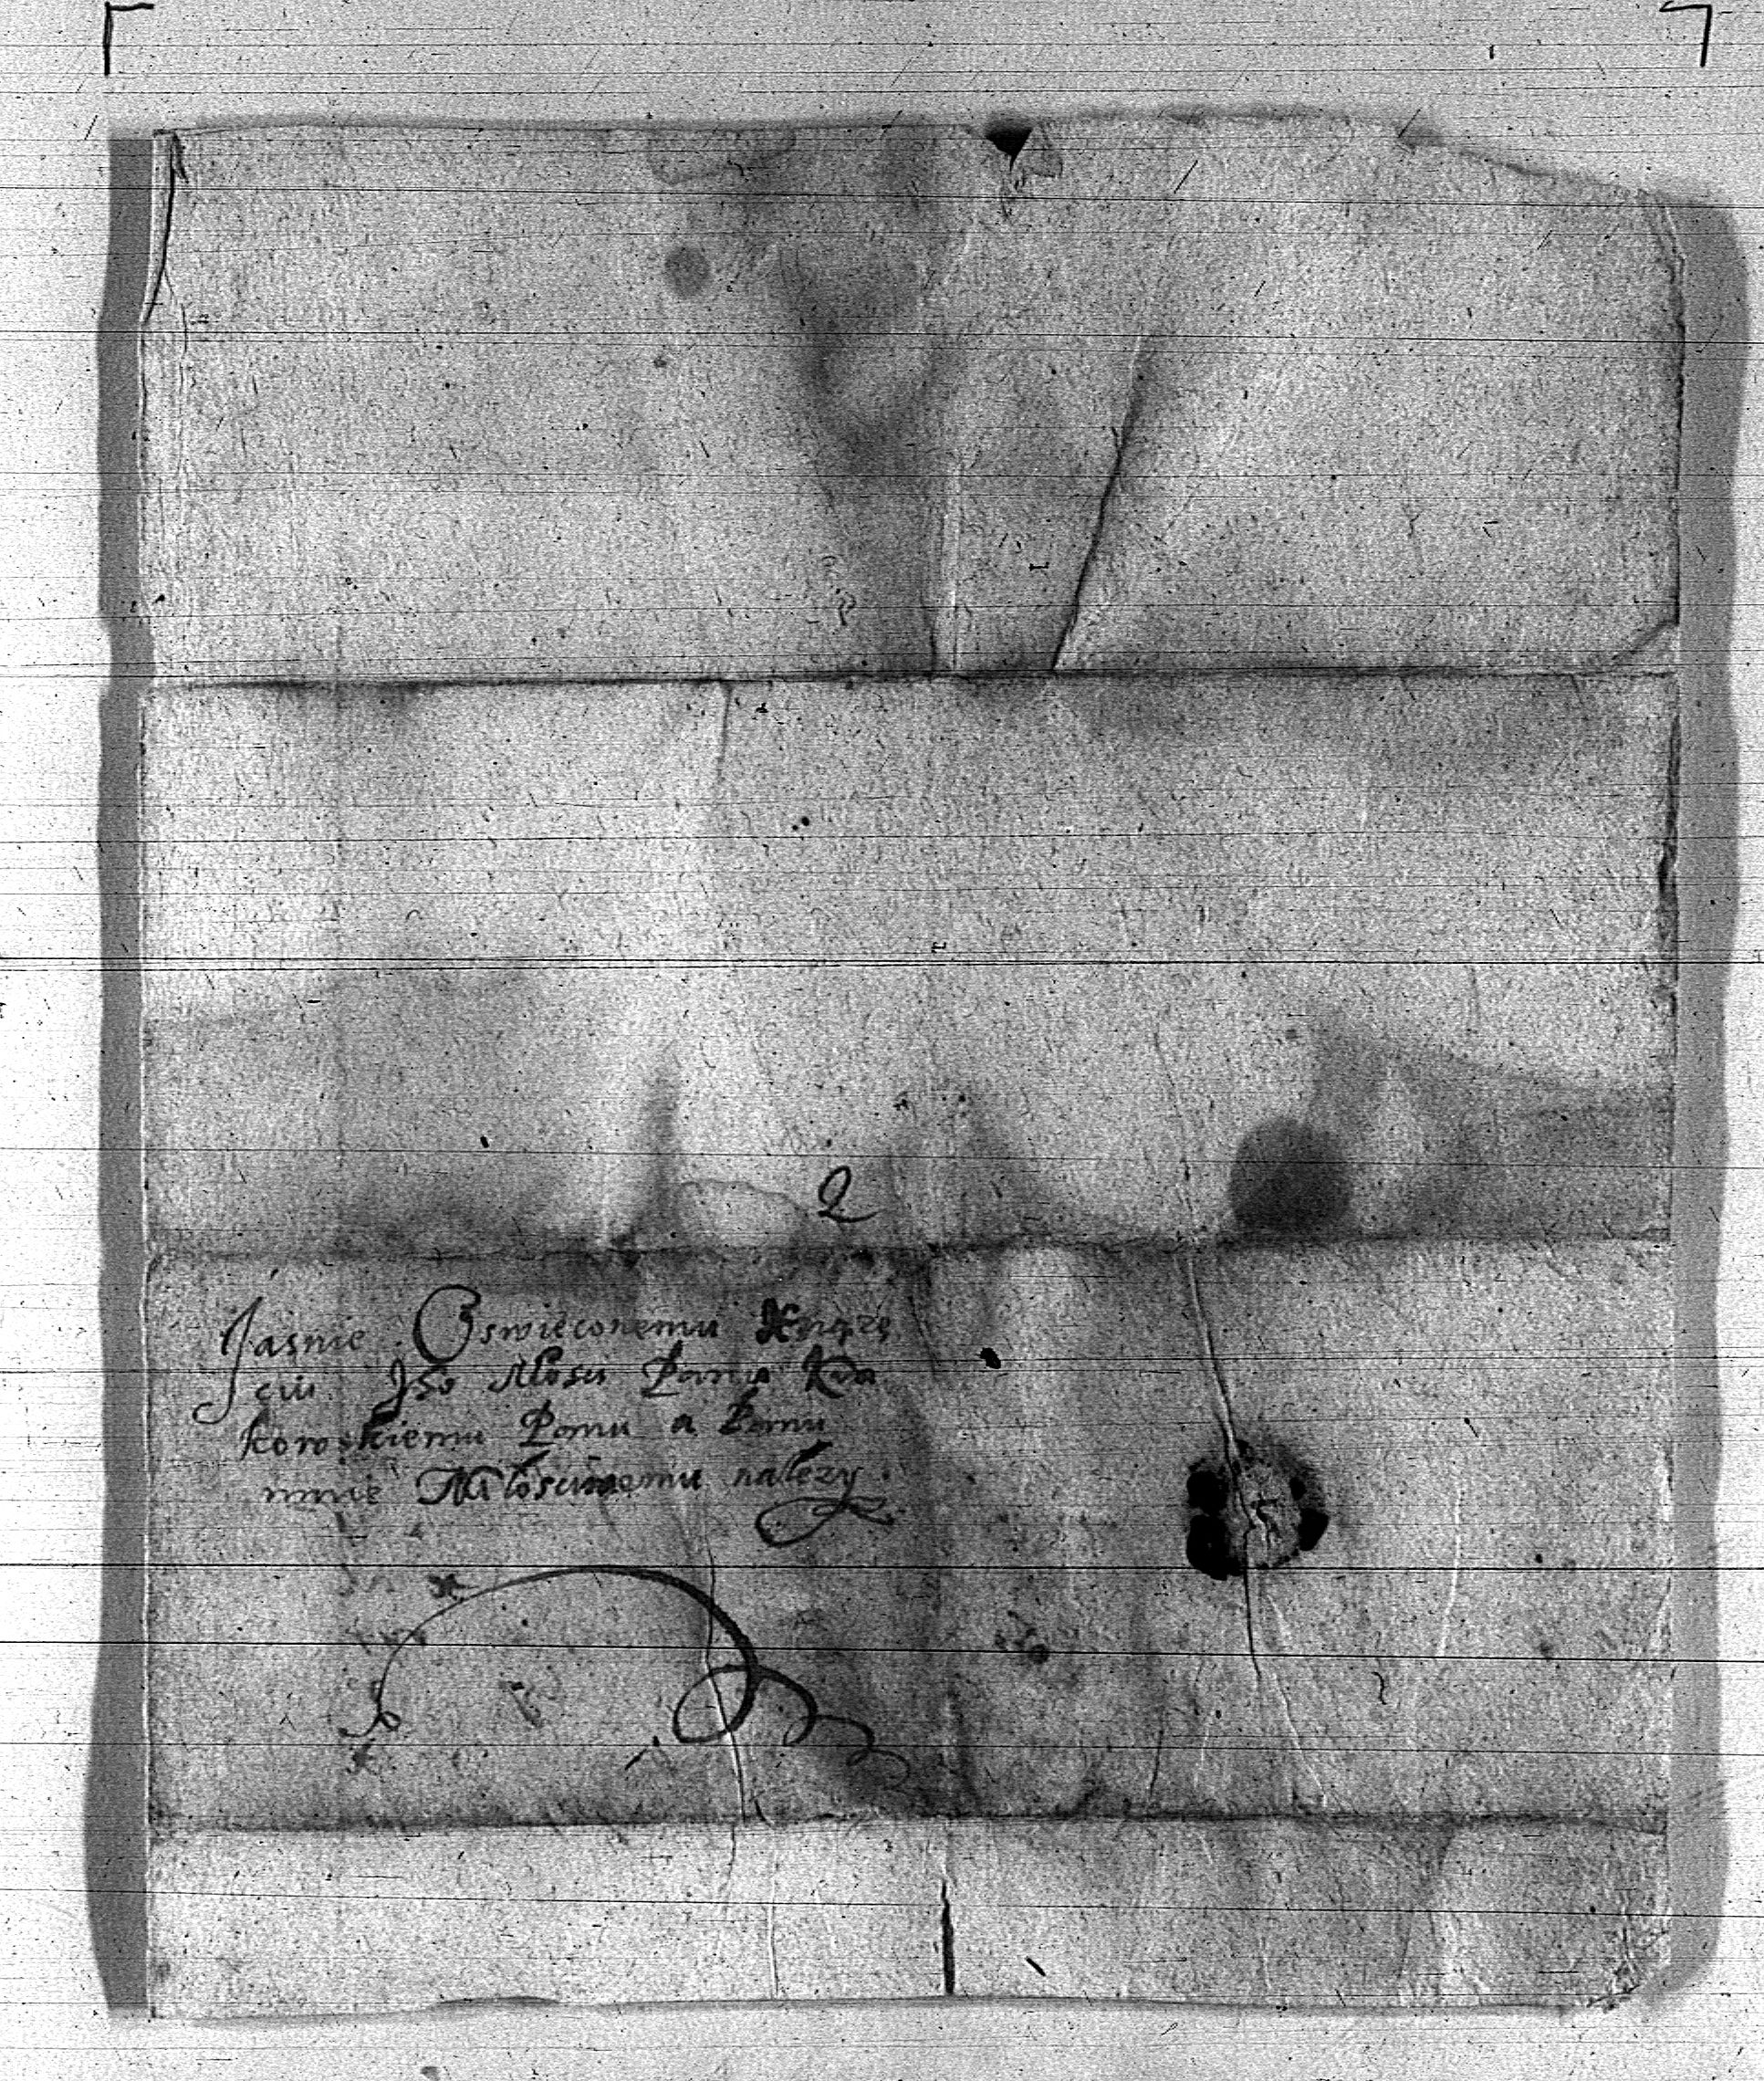 2
Jasnie Oswięconemu Xnązę
ciu Jego Młosci Panu Kra
koroskiemu Panu a Panu
mnie Miłosciwemu nalezy